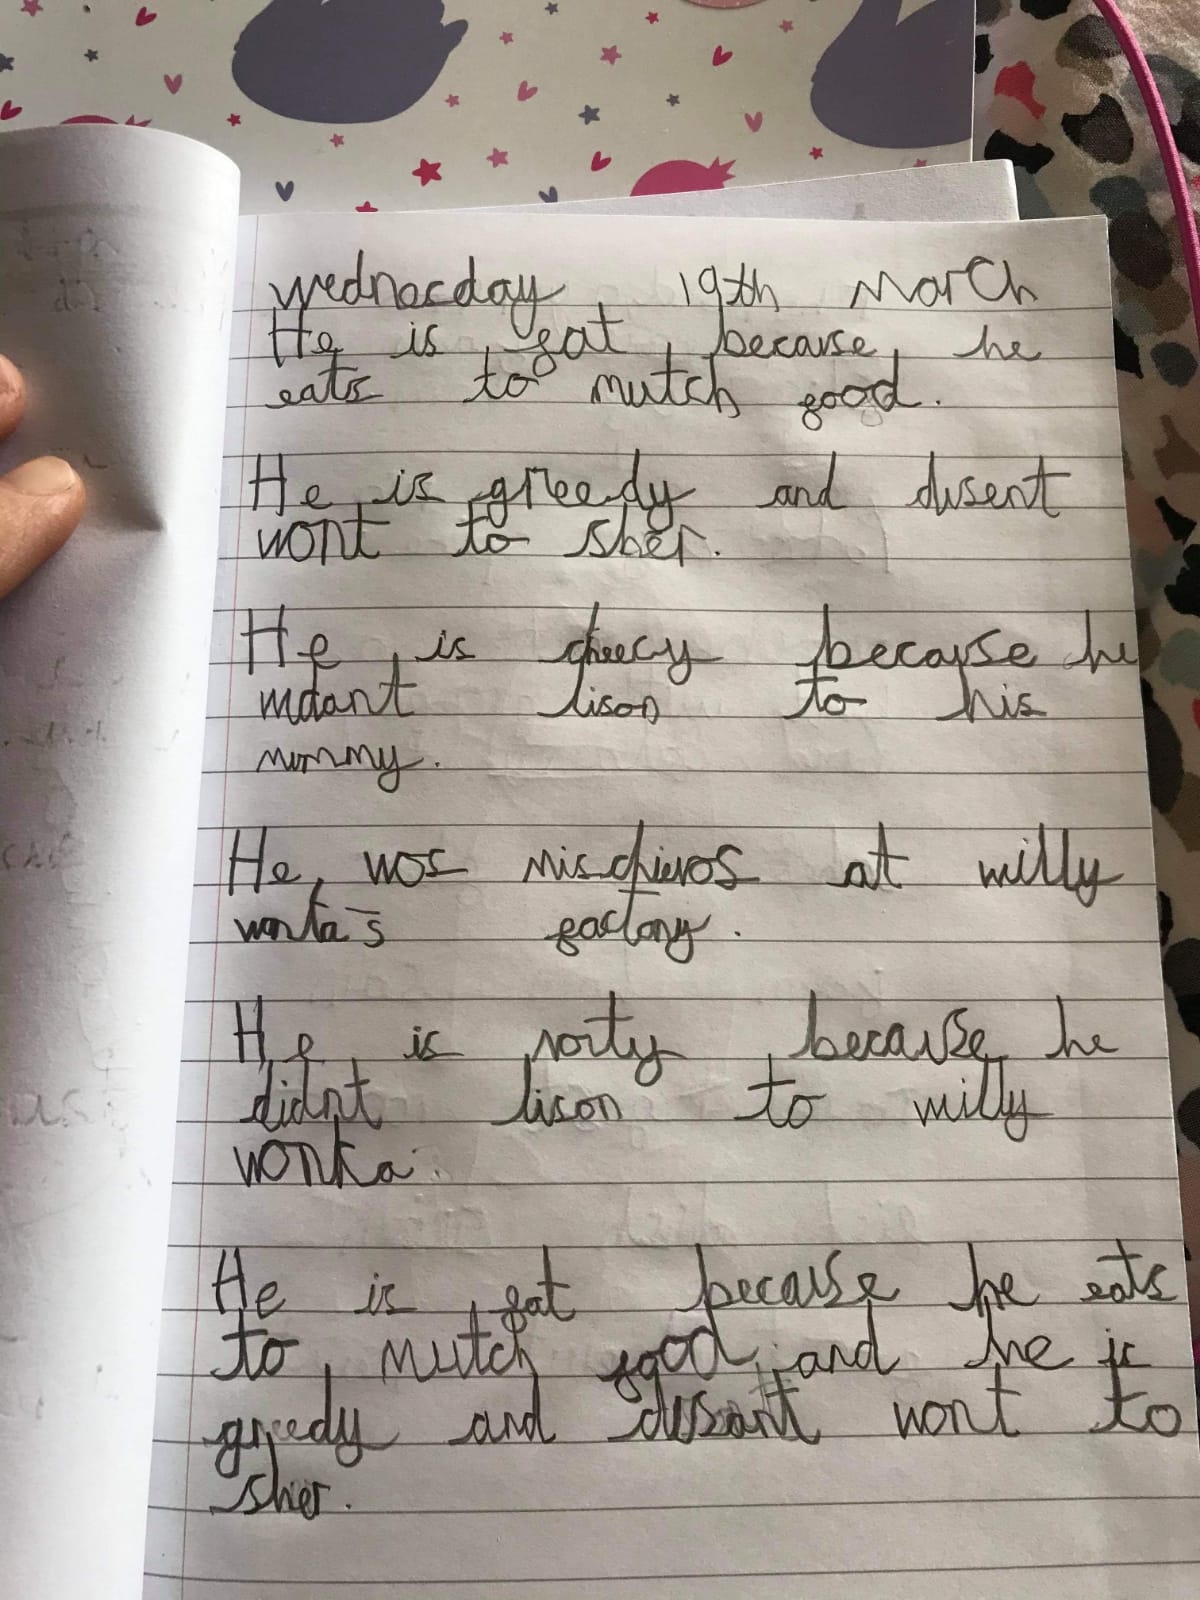 wednesday 19th March
He is fat because he
eats to mutch food.
He is greedy and dusent
wont to sher.
He is cheecy because he
lison to his
mummy.
He wos mischievos at willy
wonka's factory.
He is norty because he
didn't lison to willy
wonka.
He is fat because he eats
to mutch food and he is
greedy and dusant wont to
sher.